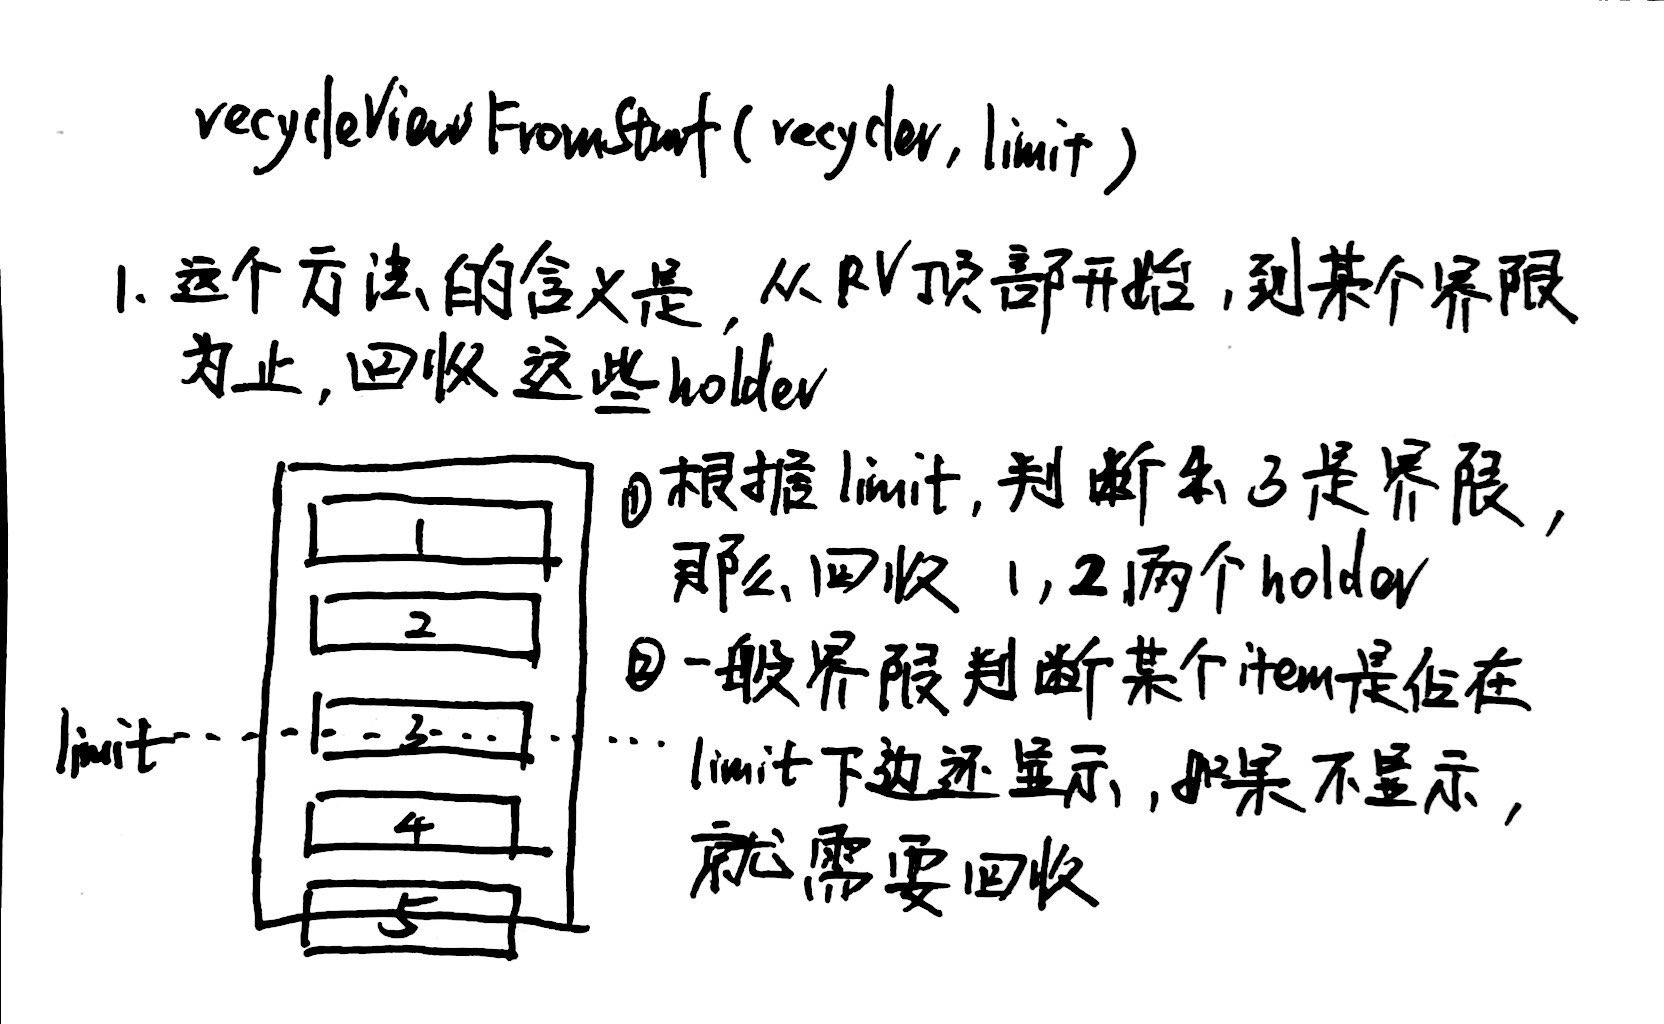 recycleViewFromStart(recycler, limit)
1. 这个方法的含义是, 从RV顶部开始, 到某个界限
为止, 回收这些holder
①根据limit, 判断出3是界限,
那么回收 1, 2两个holder
②一般界限判断某个item是位在
limit下边还显示, 如果不显示,
就需要回收
1
2
limit
3
4
5